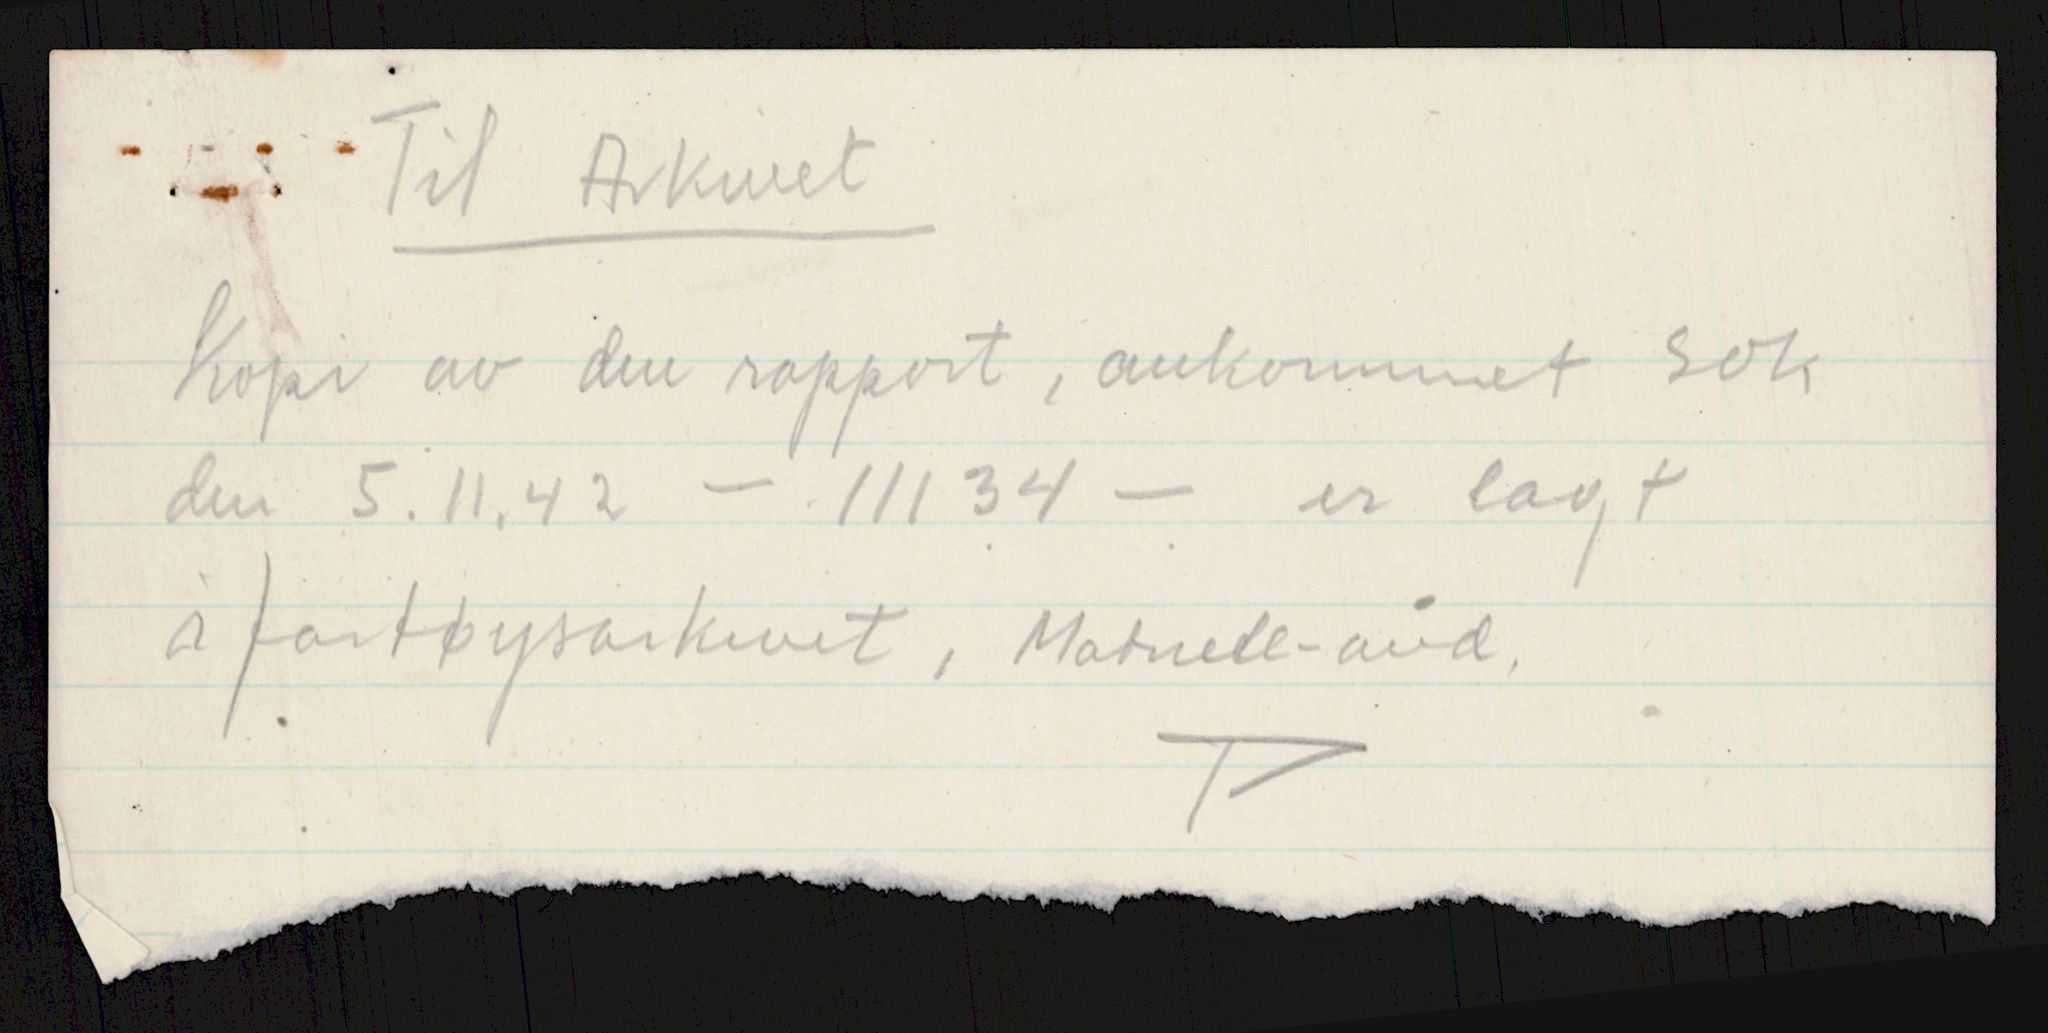 Til Arkivet
Kopi av den rapport, ankommet SOK
den 5.11.42 – 11134 – er lagt
i fartøysarkivet, Matriell-avd.